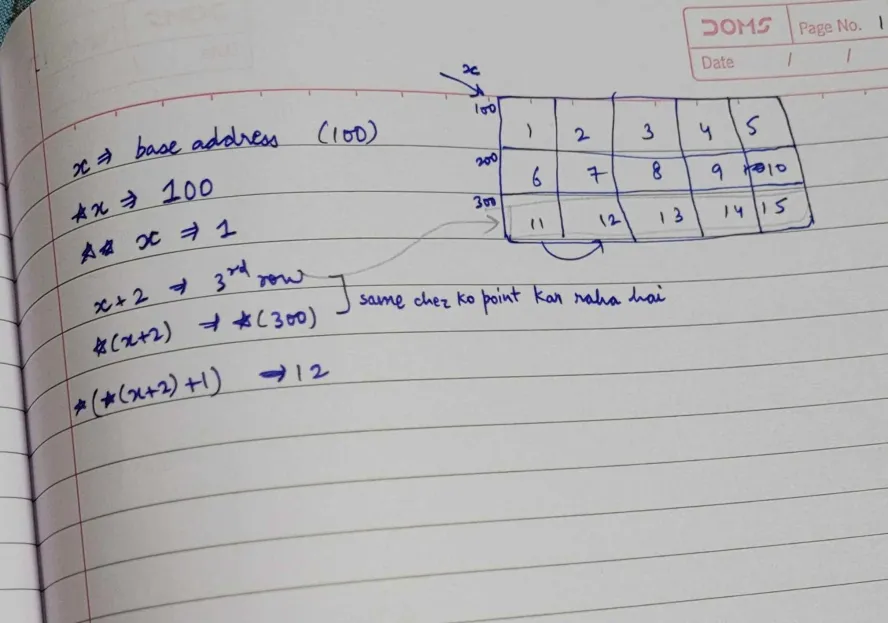 DOMS
Page No. 1
Date / /
x
100 1 2 3 4 5
200 6 7 8 9 10
300 11 12 13 14 15
x ⇒ base address (100)
*x ⇒ 100
** x ⇒ 1
x+2 ⇒ 3rd row
*(x+2) ⇒ *(300)
same chez ko point kar raha hai
*(*(x+2)+1) → 12